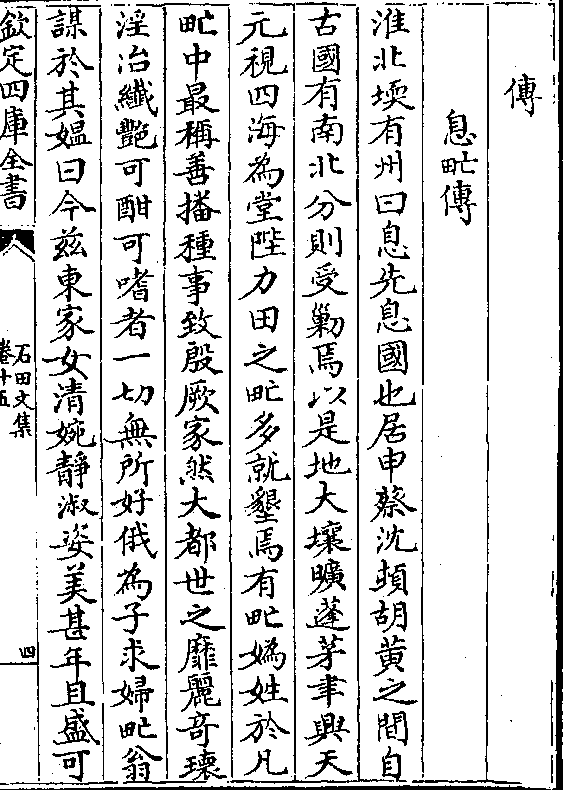 傳
息甿傳
淮北堧有州曰息先息國也居申蔡沈頓胡黃之間自
古國有南北分則受勦焉以是地大壤曠蓬茅聿興天
元視四海為堂陛力田之甿多就墾焉有甿媯姓於凡
甿中最稱善播種事致殷厥家然大都世之靡麗奇瓌
淫冶纖艷可酣可嗜者一切無所好俄為子求婦甿翁
謀於其媼曰今兹東家女清婉靜淑姿美甚年且盛可
欽定四庫全書
石田文集
卷十五
四